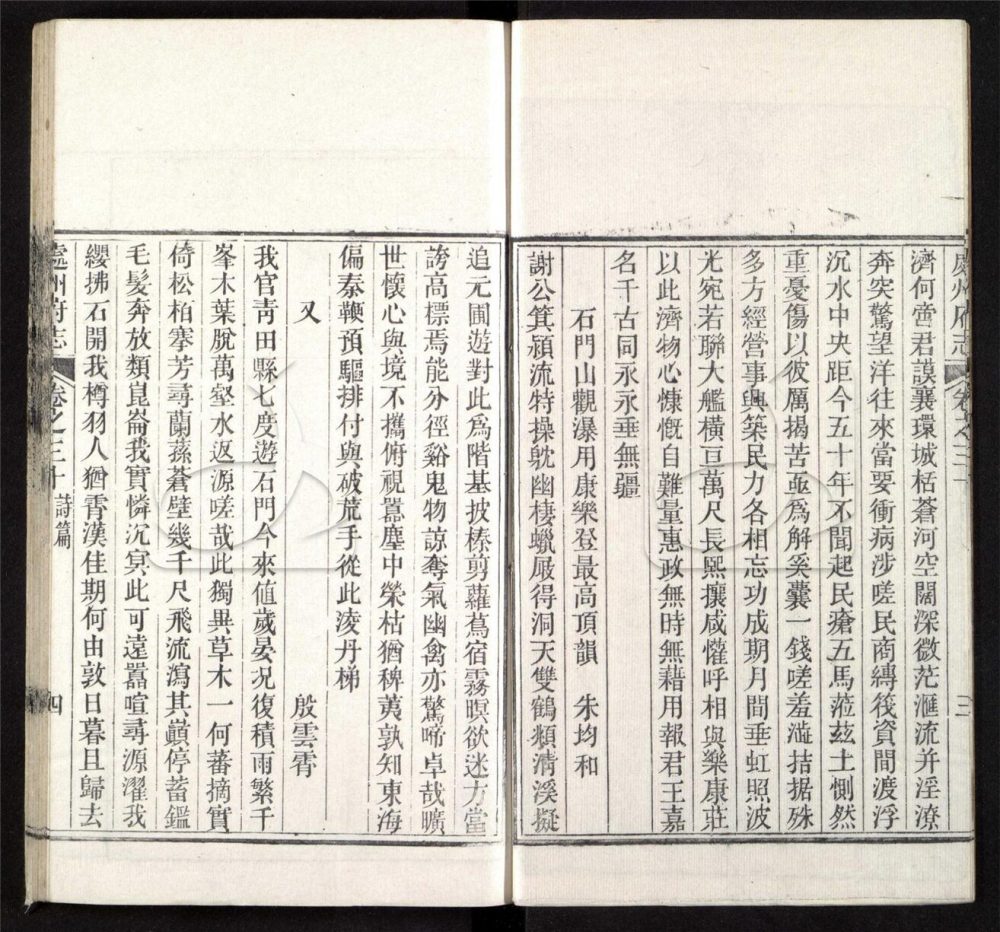 處州府志 卷之三十 三
濟何啻君謨襄環城栝蒼河空闊深微茫滙流并淫潦
奔突驚望洋往來當要衝病涉嗟民商縛筏資間渡浮
沉水中央距今五十年不聞起民瘡五馬蒞茲土惻然
重憂傷以彼厲揭苦亟爲解奚囊一錢嗟羞澁拮据殊
多方經營事興築民力各相忘功成期月間垂虹照波
光宛若聯大艦橫亘萬尺長熙攘咸懽呼相與樂康莊
以此濟物心慷慨自難量惠政無時無藉用報君王嘉
名千古同永永垂無疆
石門山觀瀑用康樂登最高頂韻 朱均和
謝公箕潁流特操躭幽棲蠟屐得洞天雙鶴頫清溪擬
追元圃遊對此爲階基披榛剪蘿蔦宿霧暝欲迷方當
誇高標焉能分徑谿鬼物諒奪氣幽禽亦驚啼卓哉曠
世懷心與境不攜俯視囂塵中榮枯猶稗荑孰知東海
偏秦鞭預驅排付與破荒手從此淩丹梯
又 殷雲霄
我官靑田縣七度遊石門今來値歲晏況復積雨繁千
峯木葉脫萬壑水返源嗟哉此獨異草木一何蕃摘實
倚松柏搴芳尋蘭蓀蒼壁幾千尺飛流瀉其巔停蓄鑑
毛髮奔放類崑崙我實憐沉冥此可遠囂喧尋源濯我
纓拂石開我樽羽人猶霄漢佳期何由敦日暮且歸去
處州府志 卷之三十 詩篇 四